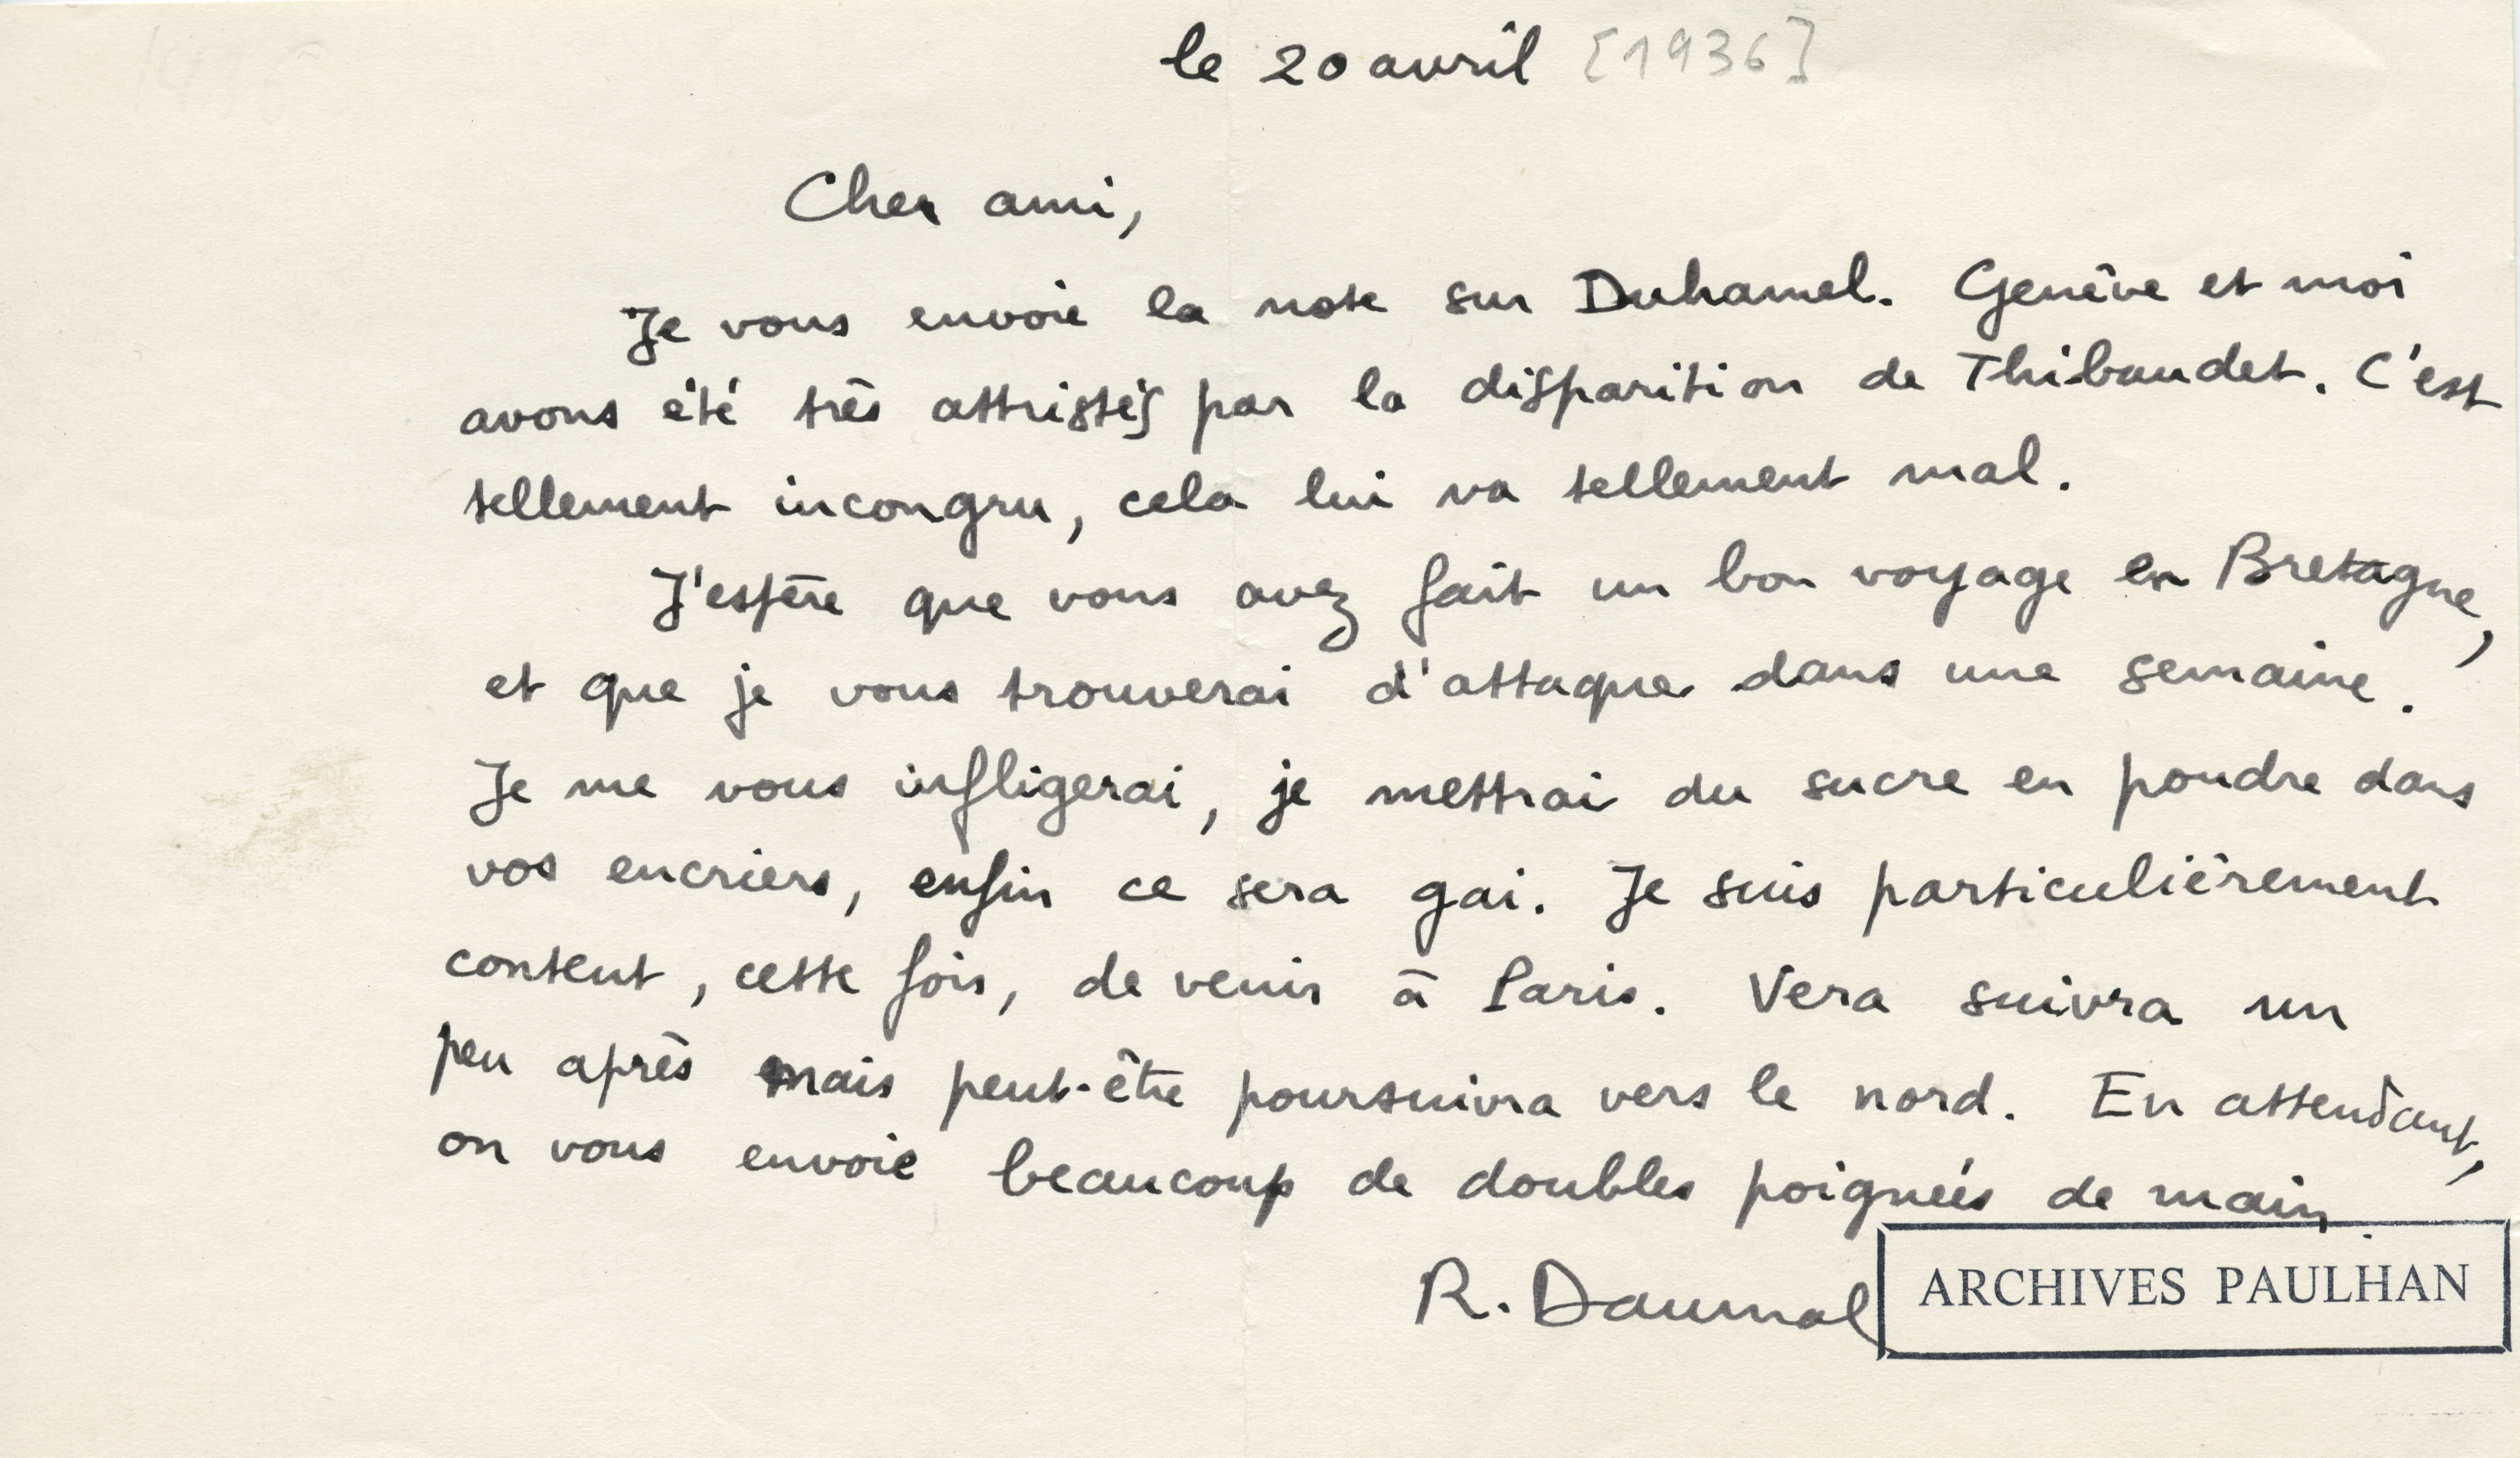 1936
le 20 avril [1936]
Cher ami,
Je vous envoie la note sur Duhamel. Genève et moi
avons été très attristés par la disparition de Thibaudet. C'est
tellement incongru, cela lui va tellement mal.
J'espère que vous avez fait un bon voyage en Bretagne,
et que je vous trouverai d'attaque dans une semaine.
Je me vous infligerai, je mettrai du sucre en poudre dans
vos encriers, enfin ce sera gai. Je suis particulièrement
content, cette fois, de venir à Paris. Vera suivra un
peu après mais peut-être poursuivra vers le nord. En attendant,
on vous envoie beaucoup de doubles poignées de main.
R. Daumal
ARCHIVES PAULHAN